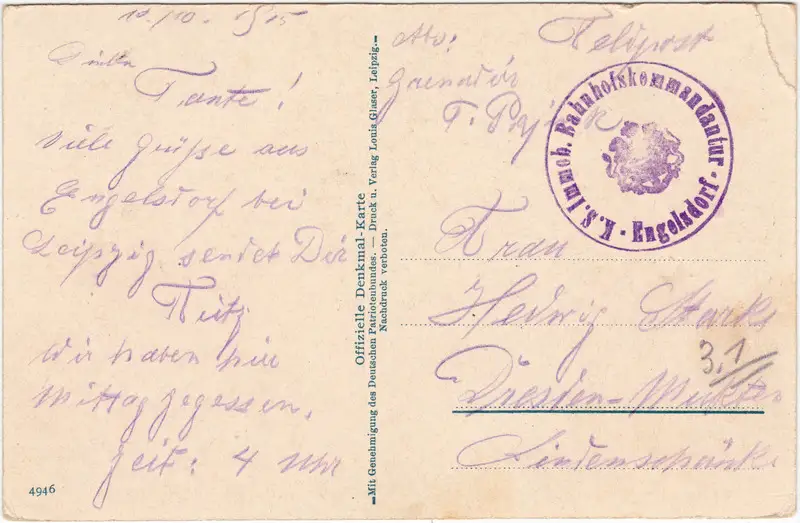 10./10. 1915
Tante!
Viele Grüsse aus
Engelsdorf bei
Leipzig sendet Dir
Fritz
Wir haben hier
Mittag gegessen.
Zeit: 4 Uhr
4946
Offizielle Denkmal-Karte
—Mit Genehmigung des Deutschen Patriotenbundes. — Druck u. Verlag Louis Glaser, Leipzig.—
Nachdruck verboten.
Feldpost
Abs:
Grenadir
F.
K. S. Immob. Bahnhofskommandantur · Engelsdorf ·
Frau
Hedwig Starke
3,1
Dresden-
Lindenschänke